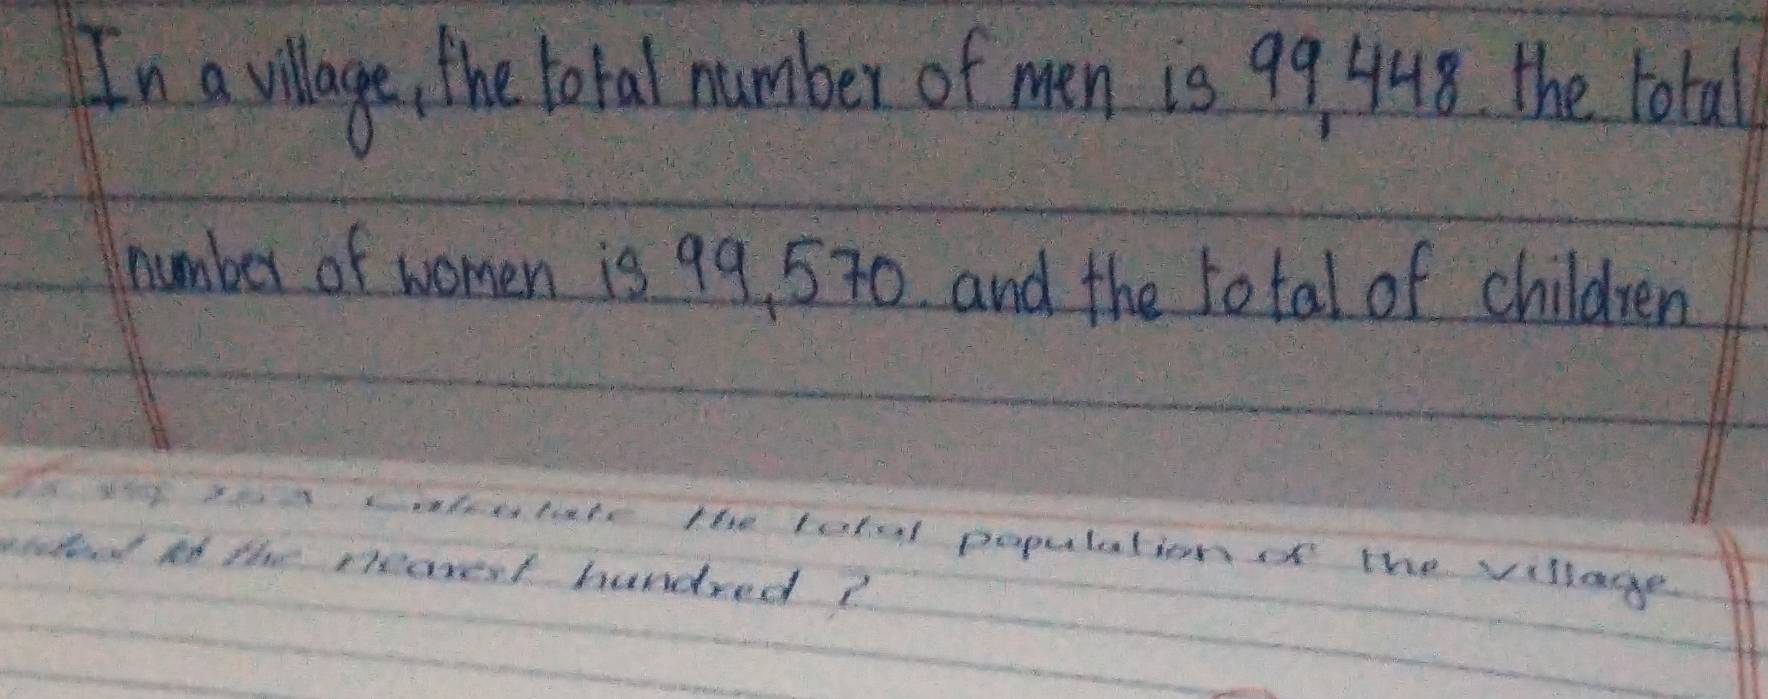 In a village, the total number of men is 99,448. the total
number of women is 99,570. and the total of children
calculate the total population of the village
to the nearest hundred ?